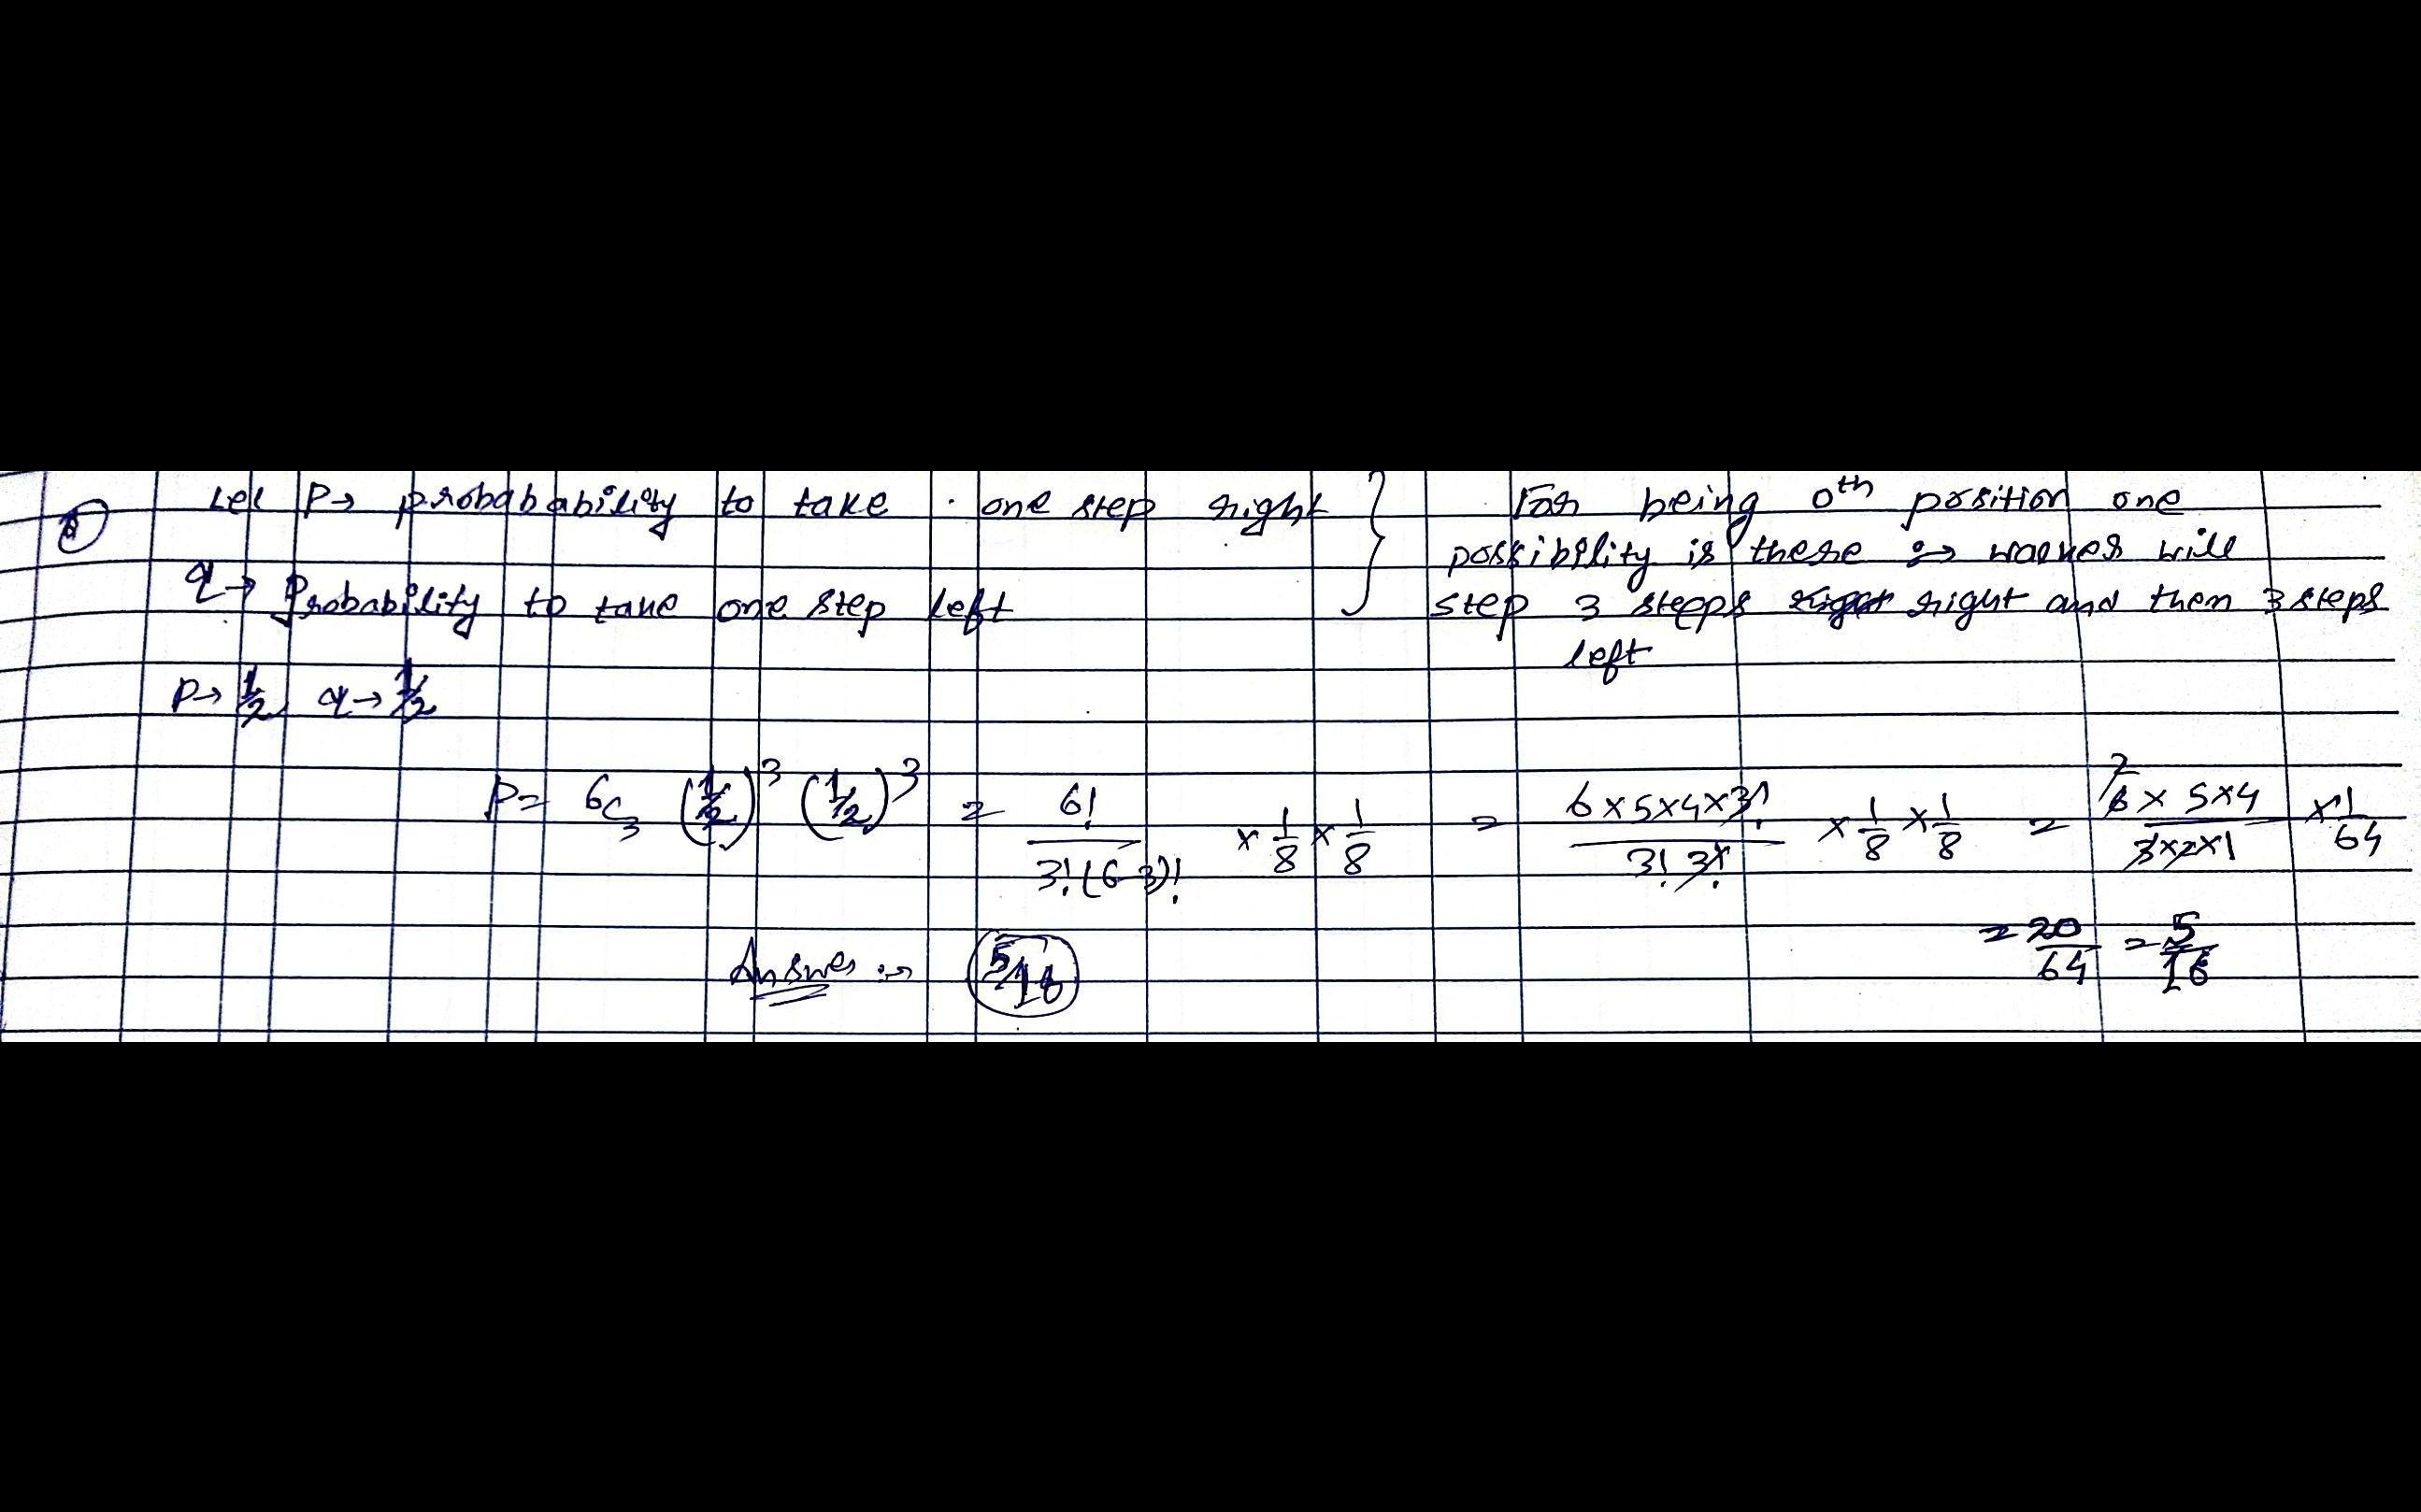 Let P → probabability to take one step right
q → Probability to take one step left
For being 0th position one
possibility is there :→ walker will
step 3 steeps right and then 3 steps
left
P → 1/2 q → 1/2
P = 6C3 (1/2)^3 (1/2)^3 = 6!/3!(6-3)! × 1/8 × 1/8 = 6×5×4×3!/3! 3! × 1/8 × 1/8 = 6 × 5×4/3×2×1 × 1/64
= 20/64 = 5/16
Answer :→ 5/16